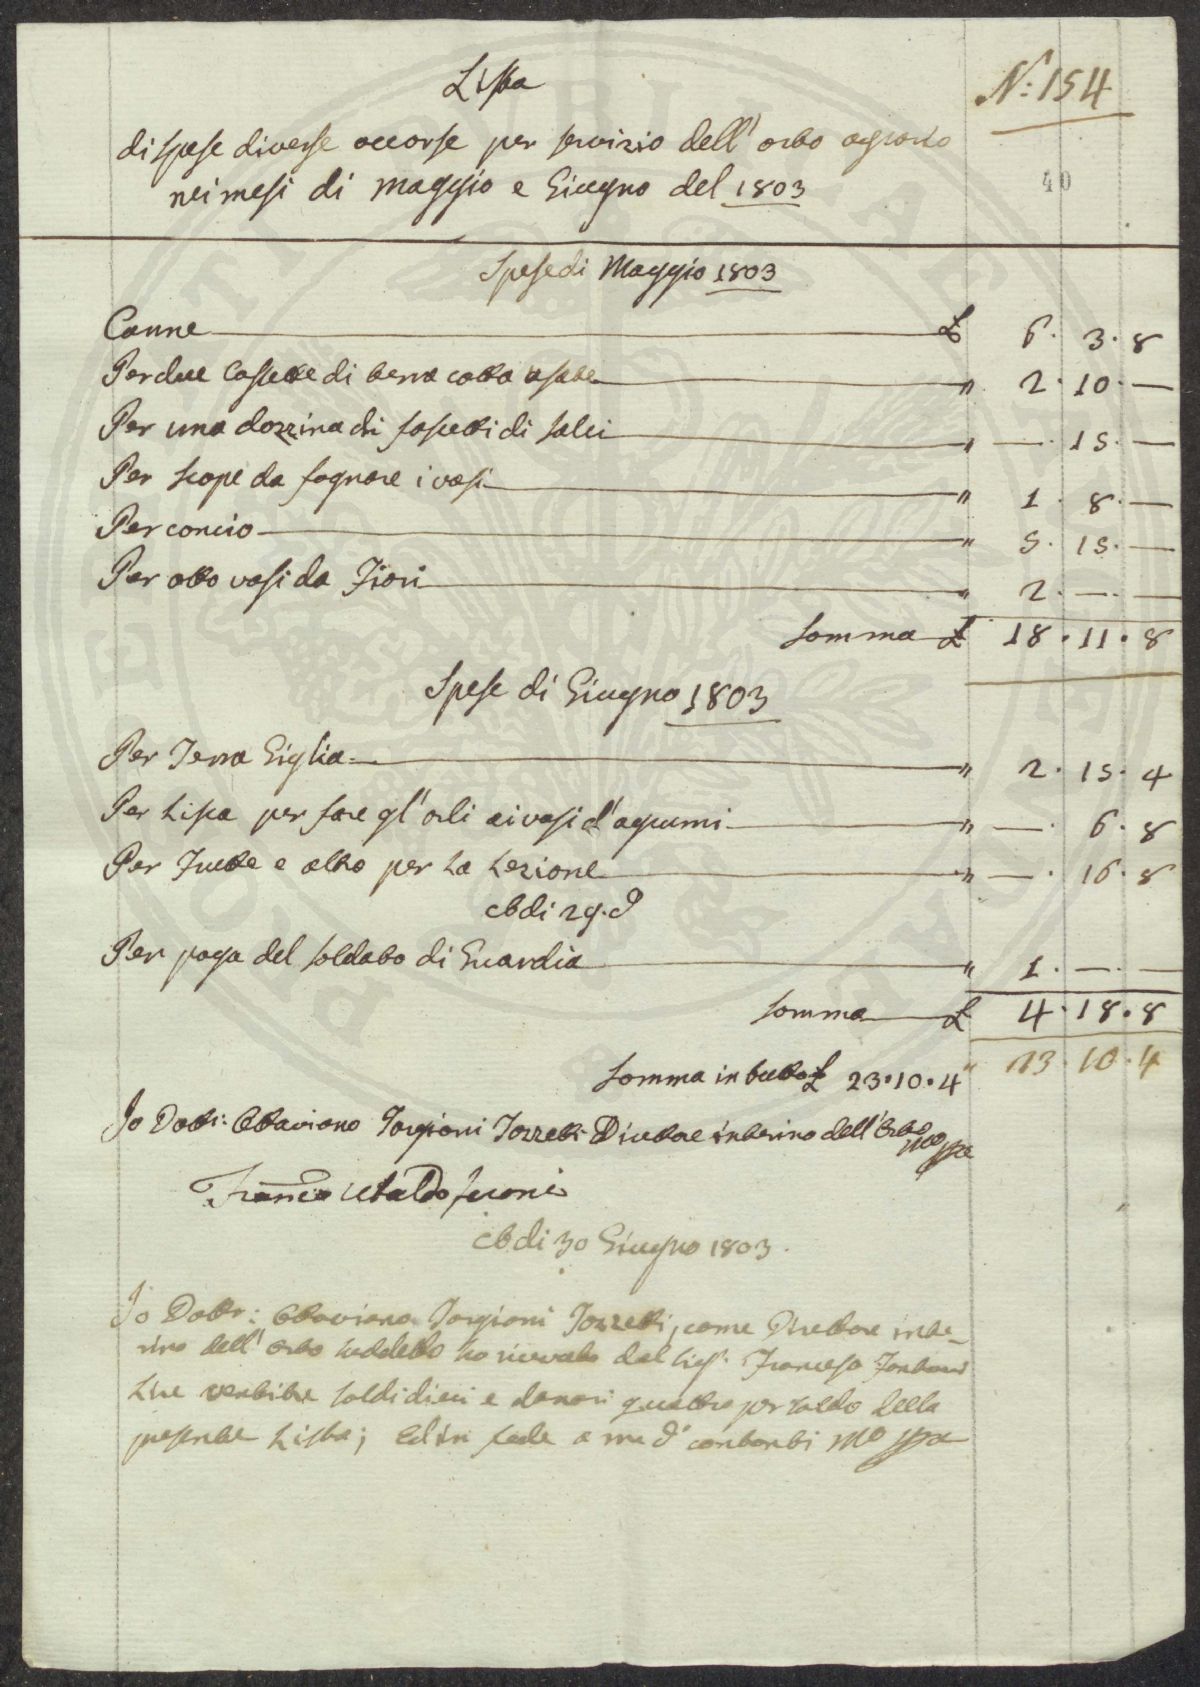 N.: 154
Lista
di spese diverse occorse per servizio dell' orto agrario
nei mesi di Maggio e Giugno del 1803
40
Spese di Maggio 1803
Canne £ 6. 3. 8
Per due Cassette di terra cotta usate " 2. 10. —
Per una dozzina di fascetti di salci " —. 15. —
Per scope da fognare i vasi " 1. 8. —
Per concio " 5. 15. —
Per otto vasi da Fiori " 2. —. —
Somma £ 18. 11. 8
Spese di Giugno 1803
Per Terra Giglia " 2. 15. 4
Per Lisca per fare gl' orli ai vasi d' agrumi " —. 6. 8
Per Frutte e altro per la Lezione " —. 16. 8
di 29. d
Per paga del soldato di Guardia " 1. —. —
Somma £ 4. 18. 8
Somma in tutto £ 23. 10. 4 " 23. 10. 4
Io Dott: Ottaviano Targioni Tozzetti Direttore interino dell' Orto mo ppa
Ubaldo Feroni
di 30 Giugno 1803.
Io Dottr: Ottaviano Targioni Tozzetti, come Direttore inte-
rino dell' Orto suddetto ho ricevuto dal Sigr. Francesco
Lire ventitre soldi dieci e denari quattro per saldo della
presente Lista; Ed in fede a me di contanti mo ppa